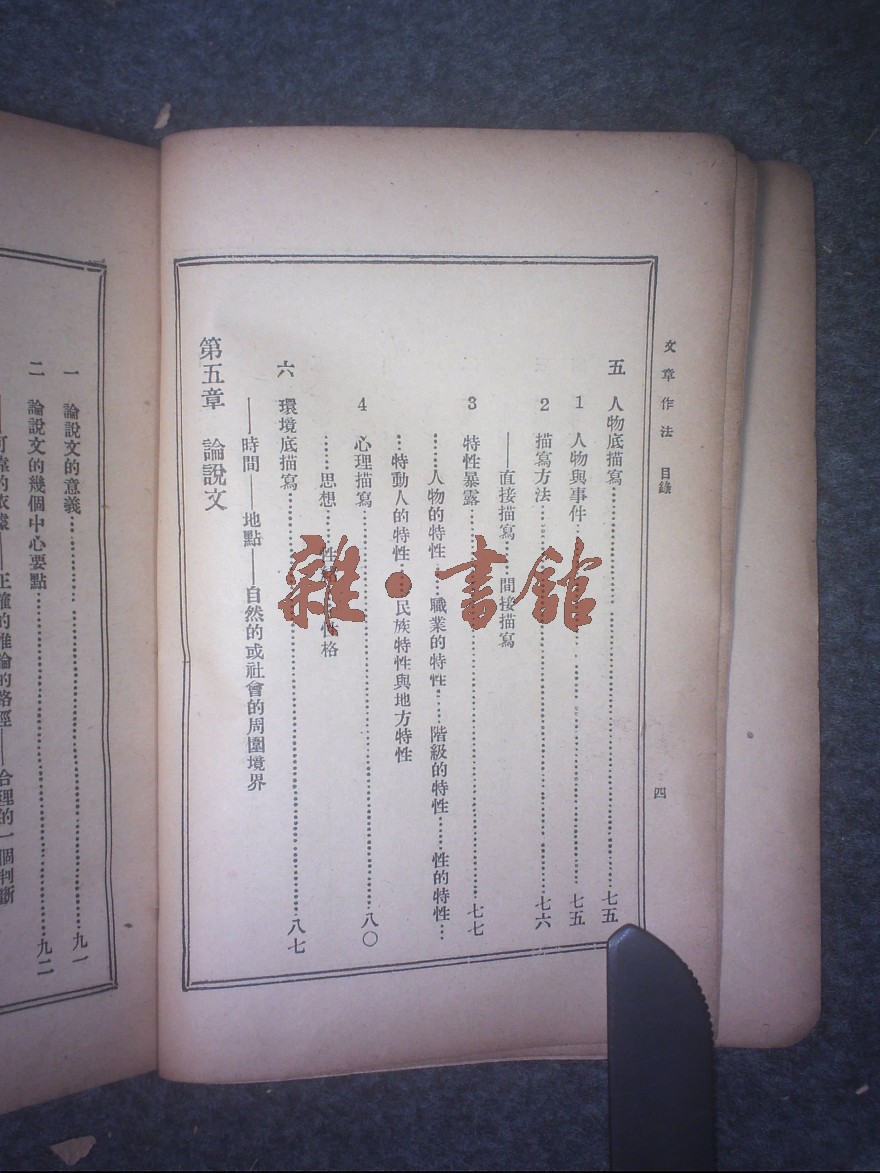 文章作法 目錄 四
五 人物底描寫……七五
1 人物與事件……七五
2 描寫方法……七六
——直接描寫……間接描寫
3 特性暴露……七七
……人物的特性……職業的特性……階級的特性……性的特性…
…特動人的特性……民族特性與地方特性
4 心理描寫……八〇
……思想……性格
六 環境底描寫……八七
——時間——地點——自然的或社會的周圍境界
第五章 論說文
一 論說文的意義……九一
二 論說文的幾個中心要點……九二
——可靠的依據——正確的推論的路徑——合理的一個判斷
雜·書館